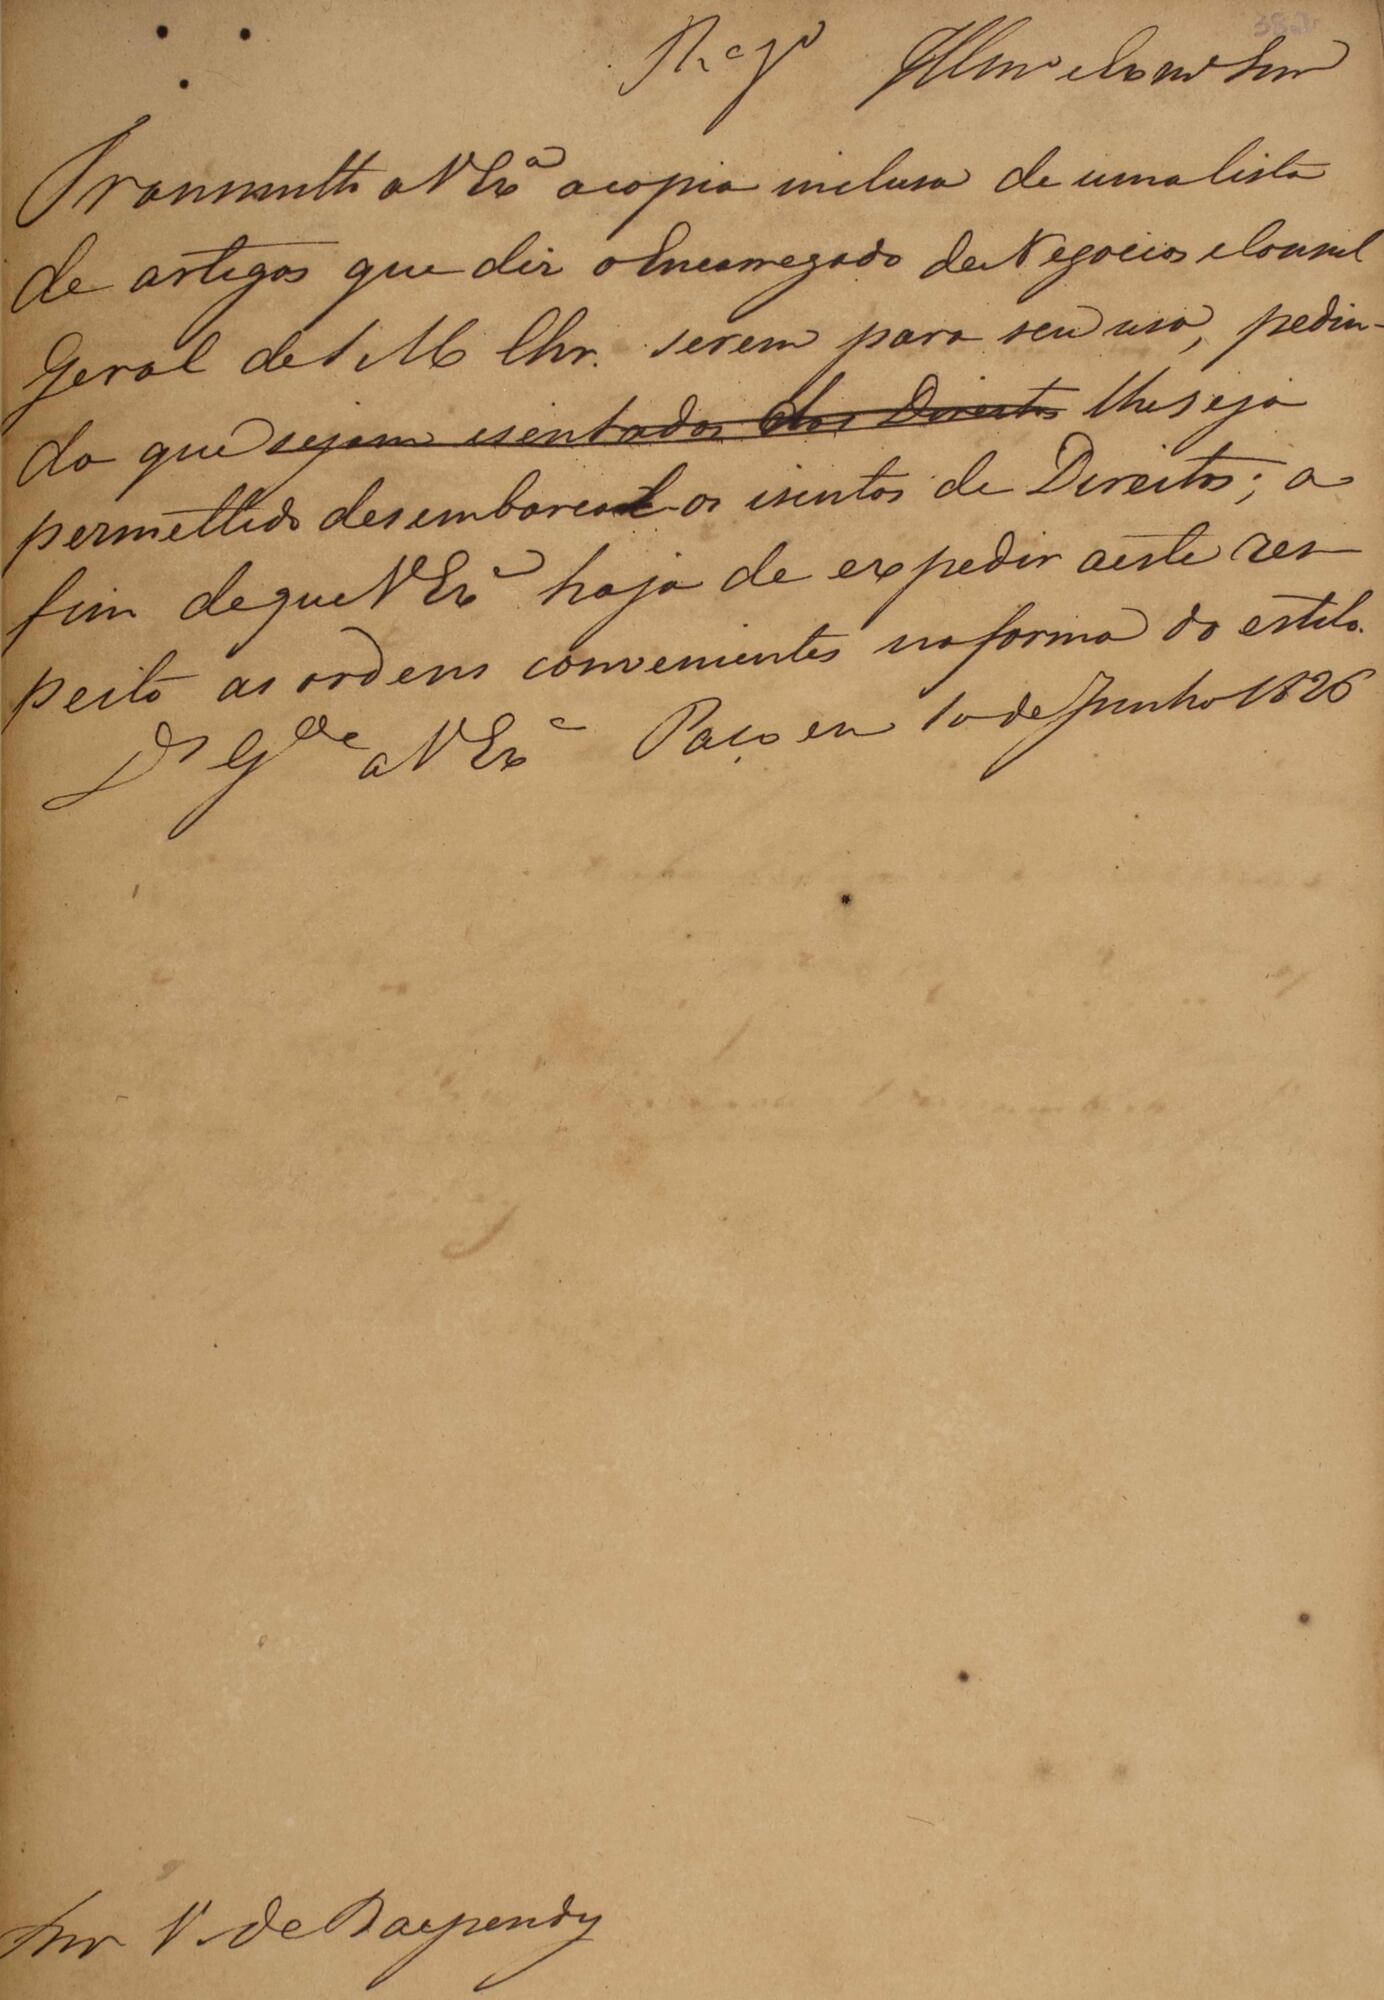 R.º g.º Illmo e Exmo Snr
Transmitto a V Exª a copia inclusa de uma lista
de artigos que diz o Encarregado de Negocios e Consul
Geral de S M Chr. serem para seu uso, pedin-
do que sejam isentados dos Direitos lhe seja
permettido desembarcal-os isentos de Direitos; a
fim de que V Exª haja de expedir a este res
peito as ordens convenientes na forma do estilo.
Ds Gde a V Exª Paço em 10 de Junho 1826
Snr V. de Baependy